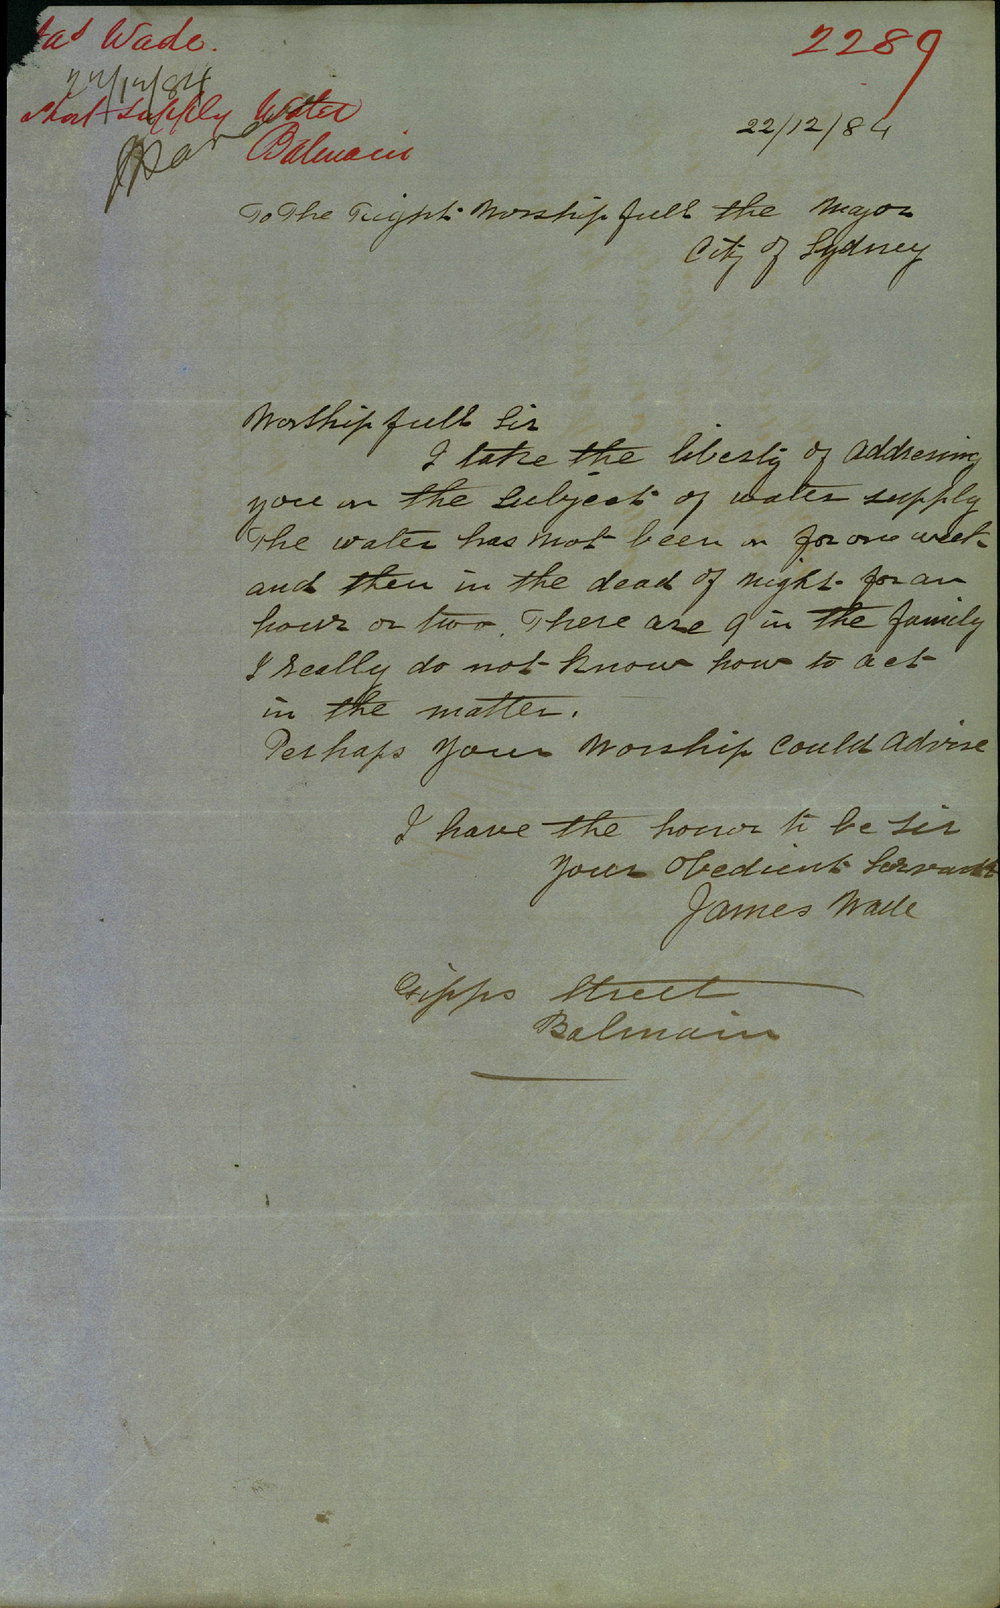 Jas Wade.
2289
22/12/84
Short Supply Water
Balmain
22/12/84
To The Right Worshipfull the Mayor
City of Sydney
Worshipfull Sir
I take the liberty of Addressing
you on the Subject of water supply
The water has not been on for one week
and then in the dead of night for an
hour or two. There are 9 in the family
I really do not know how to act
in the matter.
Perhaps Your Worship Could Advise
I have the honor to be Sir
Your Obedient Servant
James Wade
Gipps Street
Balmain